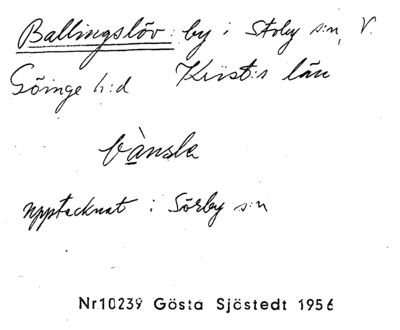 Ballingslöv: by i Stoby s:n, V.
Göinge h:d Krist:s län
bànsla
upptecknat i Sörby s:n
Nr10239 Gösta Sjöstedt 1956